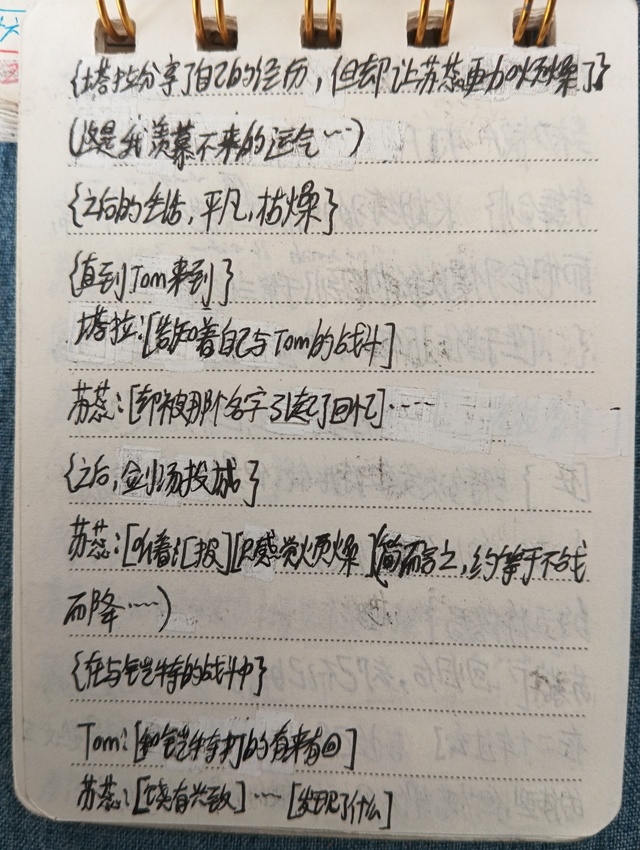 {塔拉分享了自己的经历，但却让苏蕊更加烦燥了}
(这是我羡慕不来的运气…)
{之后的生活，平凡，枯燥}
{直到Tom来到}
塔拉:[告知着自己与Tom的战斗]
苏蕊:[却被那个名字引起了回忆]……
{之后，剑汤投城}
苏蕊:[听着汇报][只感觉烦燥](简而言之，约等于不战
而降……)
{在与铠特的战斗中}
Tom:[和铠特打的有来有回]
苏蕊:[饶有兴致]……[发现了什么]